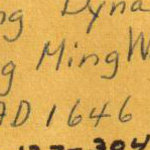 ng Dyna
g Ming W
AD 1646